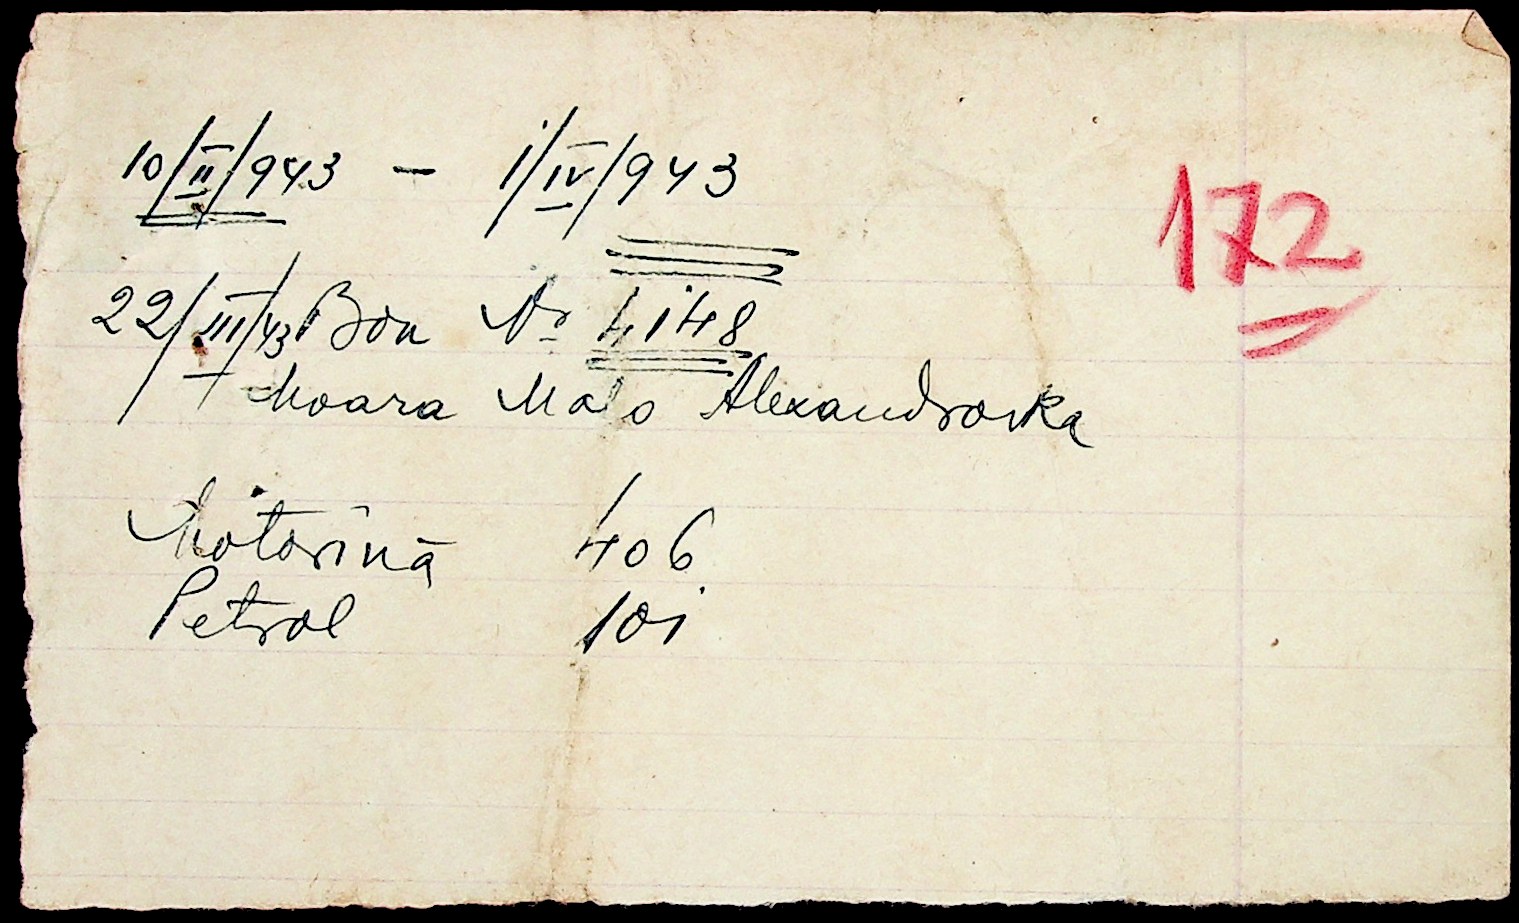 10/II/943 — 1/IV/943
172
22/III/43 Bon No 4148
Moara Malo Alexandrovka
Motorină 406
Petrol 101